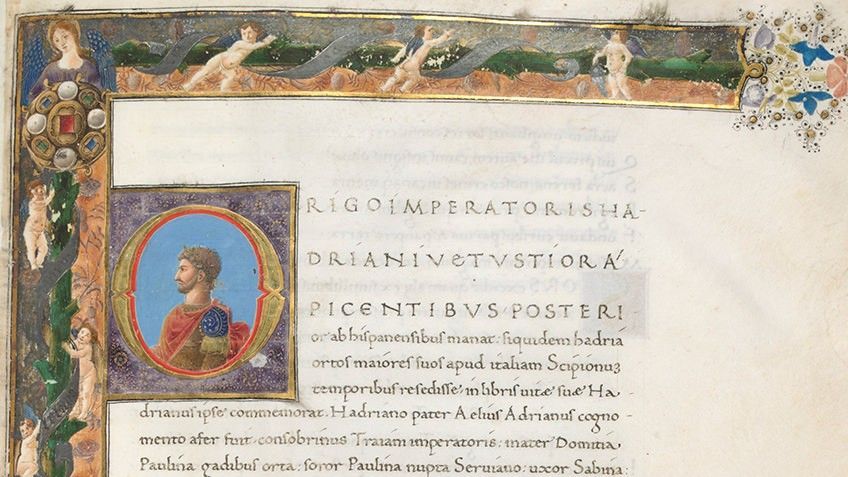 ORIGO IMPERATORIS HA-
DRIANI VETVSTIORA'
PICENTIBVS·POSTERI-
or ab hispanensibus manat: siquidem hadria
ortos maiores suos apud italiam Scipionum
temporibus resedisse in libris vitæ suæ Ha-
drianus ipse commemorat. Hadriano pater Aelius Adrianus cogno-
mento afer fuit: consobrinus Traiani imperatoris: mater Domitia
Paulina gadibus orta: soror Paulina nupta Serviano: uxor Sabina: